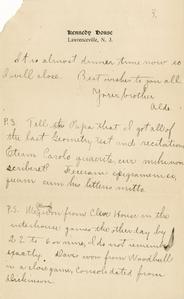 8.
Kennedy House
Lawrenceville, N. J.
It is almost dinner time now so
I will close. Best wishes to you all.
Your brother
Aldo
P.S. Tell Papa that I got all of
the last Geometry test and recitation
Etiam Carolo quaerite, cur mihi non
scribaret? Feceram epigramma,
quam cum his litteris mitto.
P.S. We won from Cleve House in the
interhouse games the other day by
22 to 6 or nine, I do not remember
exactly. Davis won from Woodhull
in a close game, consolidated from
Dickinson.